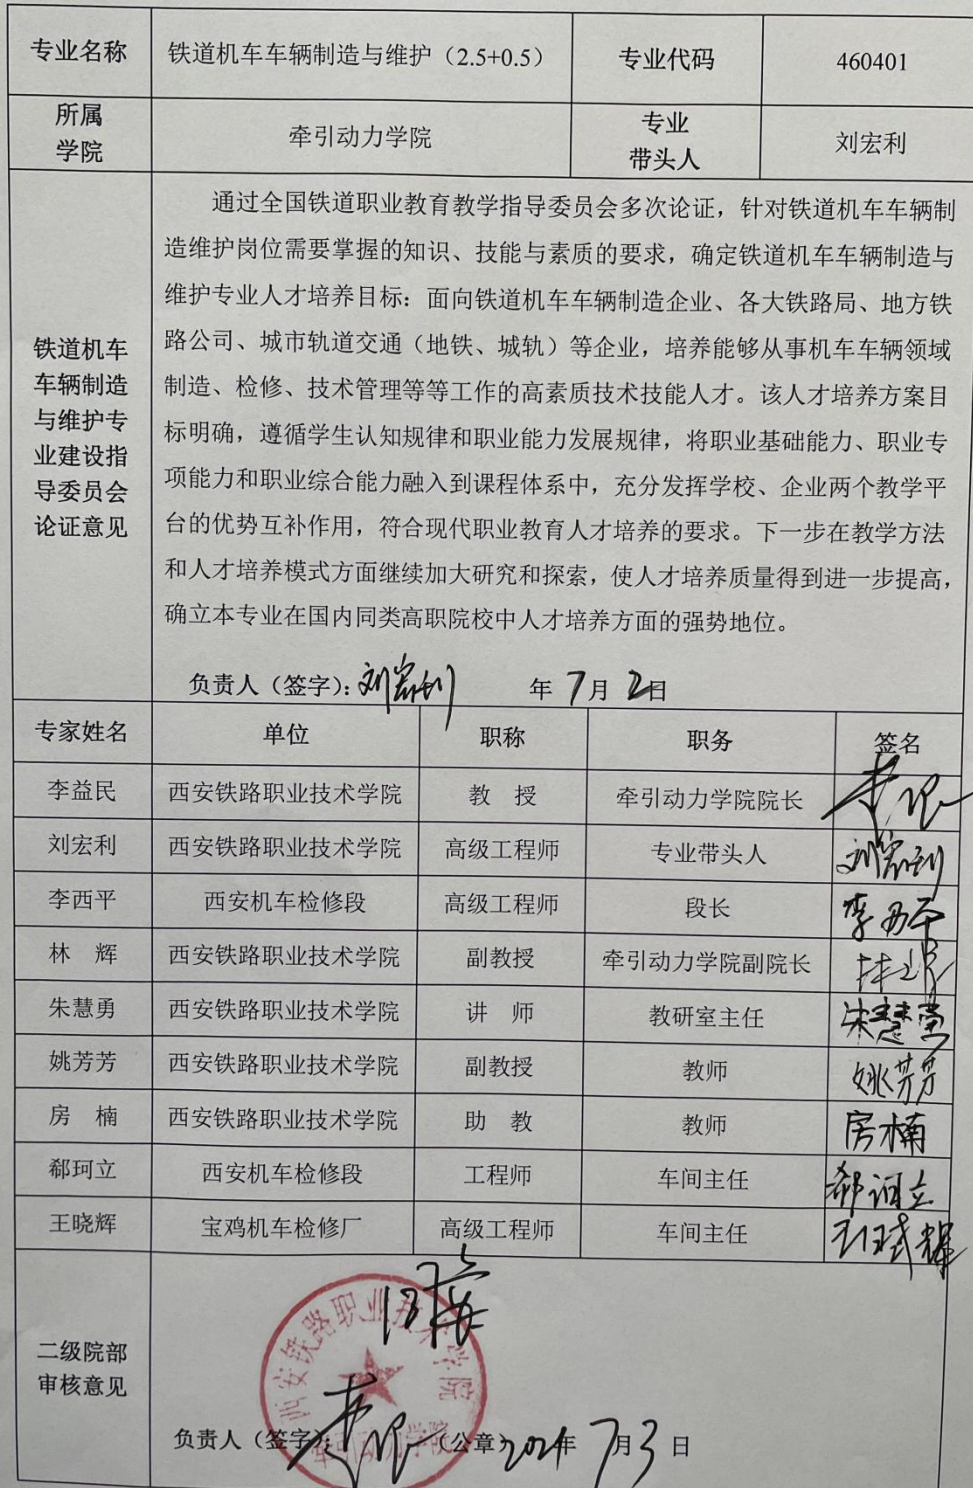 专业名称 铁道机车车辆制造与维护（2.5+0.5） 专业代码 460401
所属
学院 牵引动力学院 专业
带头人 刘宏利
铁道机车
车辆制造
与维护专
业建设指
导委员会
论证意见
通过全国铁道职业教育教学指导委员会多次论证，针对铁道机车车辆制
造维护岗位需要掌握的知识、技能与素质的要求，确定铁道机车车辆制造与
维护专业人才培养目标：面向铁道机车车辆制造企业、各大铁路局、地方铁
路公司、城市轨道交通（地铁、城轨）等企业，培养能够从事机车车辆领域
制造、检修、技术管理等等工作的高素质技术技能人才。该人才培养方案目
标明确，遵循学生认知规律和职业能力发展规律，将职业基础能力、职业专
项能力和职业综合能力融入到课程体系中，充分发挥学校、企业两个教学平
台的优势互补作用，符合现代职业教育人才培养的要求。下一步在教学方法
和人才培养模式方面继续加大研究和探索，使人才培养质量得到进一步提高，
确立本专业在国内同类高职院校中人才培养方面的强势地位。
负责人（签字）：刘宏利 年 7月 2日
专家姓名 单位 职称 职务 签名
李益民 西安铁路职业技术学院 教 授 牵引动力学院院长
刘宏利 西安铁路职业技术学院 高级工程师 专业带头人 刘宏利
李西平 西安机车检修段 高级工程师 段长 李西平
林 辉 西安铁路职业技术学院 副教授 牵引动力学院副院长 林辉
朱慧勇 西安铁路职业技术学院 讲 师 教研室主任 朱慧勇
姚芳芳 西安铁路职业技术学院 副教授 教师 姚芳芳
房 楠 西安铁路职业技术学院 助 教 教师 房楠
郗珂立 西安机车检修段 工程师 车间主任 郗珂立
王晓辉 宝鸡机车检修厂 高级工程师 车间主任
二级院部
审核意见
同意
西安铁路职业技术学院
牵引动力学院
负责人（签字）： （公章）2021年 7月3 日